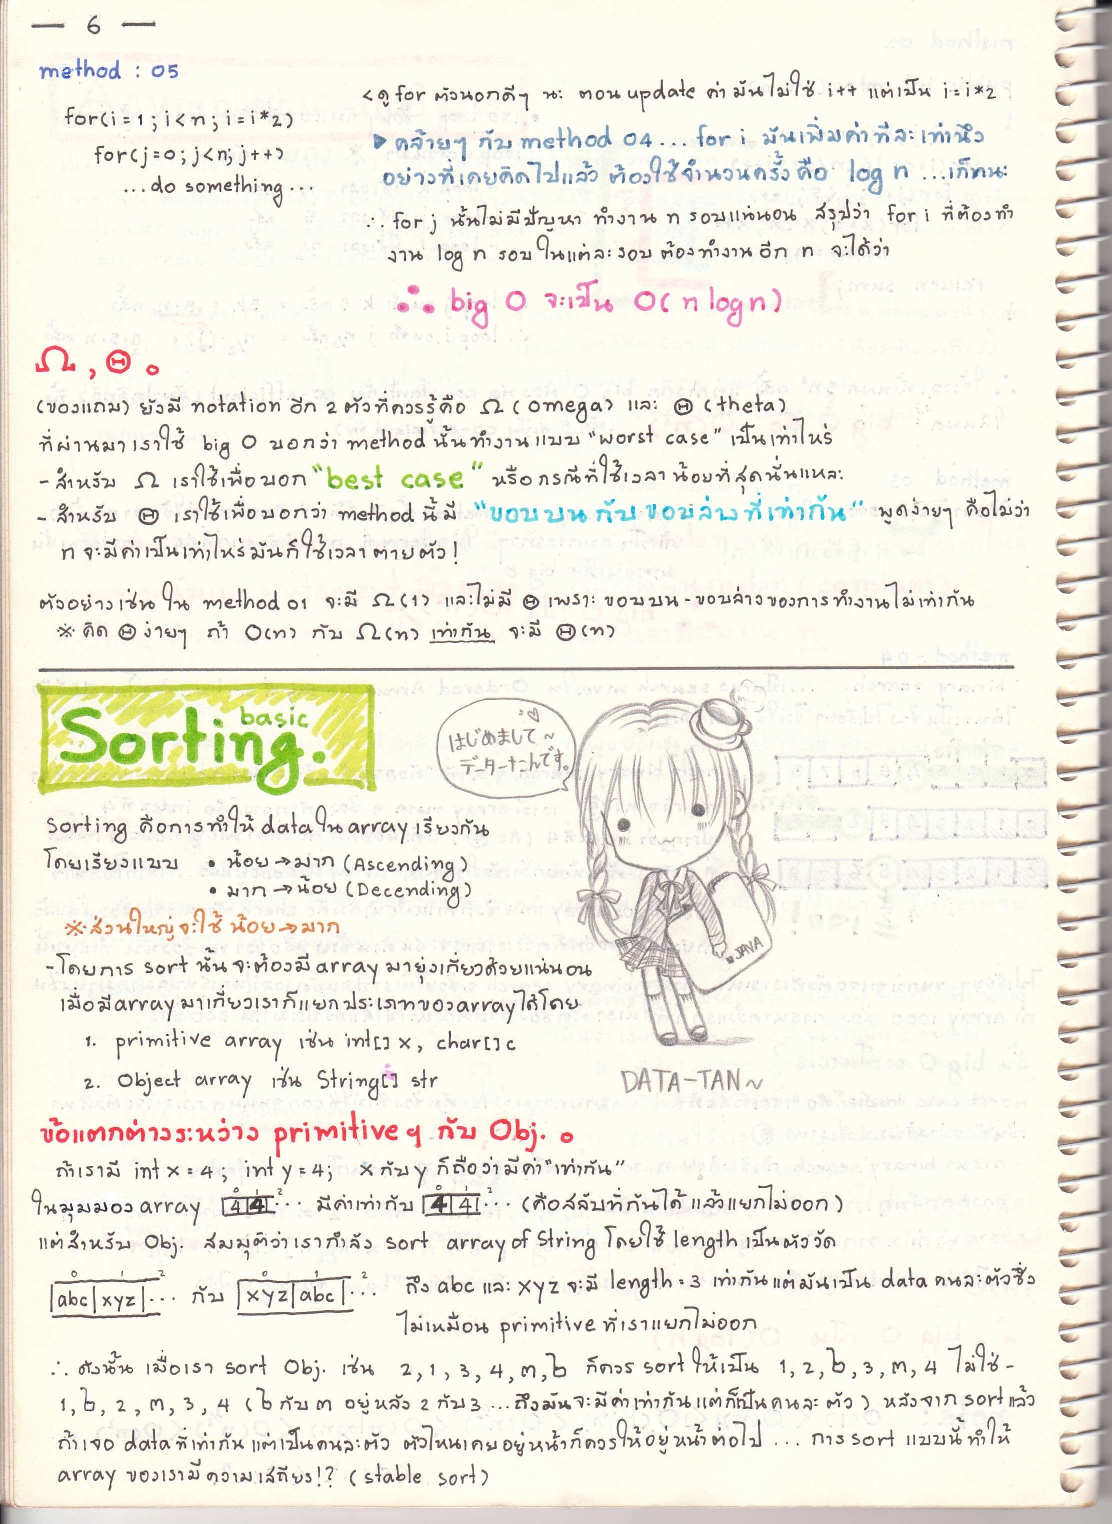 — 6 —
method : 05
for(i=1; i<n; i=i*2)
for(j=0; j<n; j++)
...do something...
<ดู for ตัวนอกดีๆ นะ ตอน update ค่า มันไม่ใช่ i++ แต่เป็น i=i*2
▶ คล้ายๆ กับ method 04... for i มันเพิ่มค่าทีละเท่านึง
อย่างที่เคยคิดไปแล้ว ต้องใช้จำนวนครั้งคือ log n ...เก็ทนะ
∴ for j นั้นไม่มีปัญหา ทำงาน n รอบแน่นอน สรุปว่า for i ที่ต้องทำ
งาน log n รอบ ในแต่ละรอบ ต้องทำงานอีก n จะได้ว่า
∴ big O จะเป็น O( n log n)
Ω , Θ .
(ของแถม) ยังมี notation อีก 2 ตัวที่ควรรู้คือ Ω (omega) และ Θ (theta)
ที่ผ่านมา เราใช้ big O บอกว่า method นั้นทำงานแบบ "worst case" เป็นเท่าไหร่
- สำหรับ Ω เราใช้เพื่อบอก "best case" หรือกรณีที่ใช้เวลาน้อยที่สุดนั่นแหละ
- สำหรับ Θ เราใช้เพื่อบอกว่า method นี้มี "ขอบบน กับ ขอบล่าง ที่เท่ากัน" พูดง่ายๆ คือไม่ว่า
n จะมีค่าเป็นเท่าไหร่มันก็ใช้เวลาตายตัว!
ตัวอย่างเช่น ใน method 01 จะมี Ω(1) และไม่มี Θ เพราะ ขอบบน-ขอบล่างของการทำงานไม่เท่ากัน
※ คิด Θ ง่ายๆ ถ้า O(n) กับ Ω(n) เท่ากัน จะมี Θ(n)
basic
Sorting.
はじめまして~
データ-たんです。
sorting คือการทำให้ data ใน array เรียงกัน
โดยเรียงแบบ • น้อย→มาก (Ascending)
• มาก→น้อย (Decending)
※ส่วนใหญ่จะใช้ น้อย→มาก
-โดยการ sort นั้น จะต้องมี array มายุ่งเกี่ยวด้วยแน่นอน
เมื่อมี array มาเกี่ยวเราก็แยกประเภทของ array ได้โดย
1. primitive array เช่น int[] x, char[] c
2. Object array เช่น String[] str
JAVA
DATA-TAN~
ข้อแตกต่างระหว่าง primitive ๆ กับ Obj. .
ถ้าเรามี int x = 4; int y = 4; x กับ y ก็ถือว่ามีค่า "เท่ากัน"
0 1 2 0 1 2
ในมุมมอง array |4|4|... มีค่าเท่ากับ |4|4|... (คือสลับที่กันได้ แล้วแยกไม่ออก)
แต่สำหรับ Obj. สมมุติว่าเรากำลัง sort array of String โดยใช้ length เป็นตัววัด
0 1 2 0 1 2
|abc|xyz|... กับ |xyz|abc|... ถึง abc และ xyz จะมี length = 3 เท่ากันแต่มันเป็น data คนละตัวซึ่ง
ไม่เหมือน primitive ที่เราแยกไม่ออก
∴ ดังนั้น เมื่อเรา sort Obj. เช่น 2, 1, 3, 4, ๓, ๒ ก็ควร sort ให้เป็น 1, 2, ๒, 3, ๓, 4 ไม่ใช่ -
1, ๒, 2, ๓, 3, 4 (๒ กับ ๓ อยู่หลัง 2 กับ 3 ...ถึงมันจะมีค่าเท่ากันแต่ก็เป็นคนละตัว) หลังจาก sort แล้ว
ถ้าเจอ data ที่เท่ากัน แต่เป็นคนละตัว ตัวไหนเคยอยู่หน้าก็ควรให้อยู่หน้าต่อไป ... การ sort แบบนี้ทำให้
array ของเรามีความเสถียร!? (stable sort)